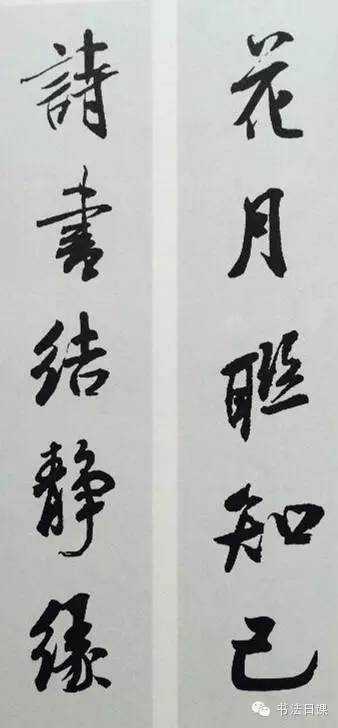 花月聯知己
詩書结静缘
书法日课